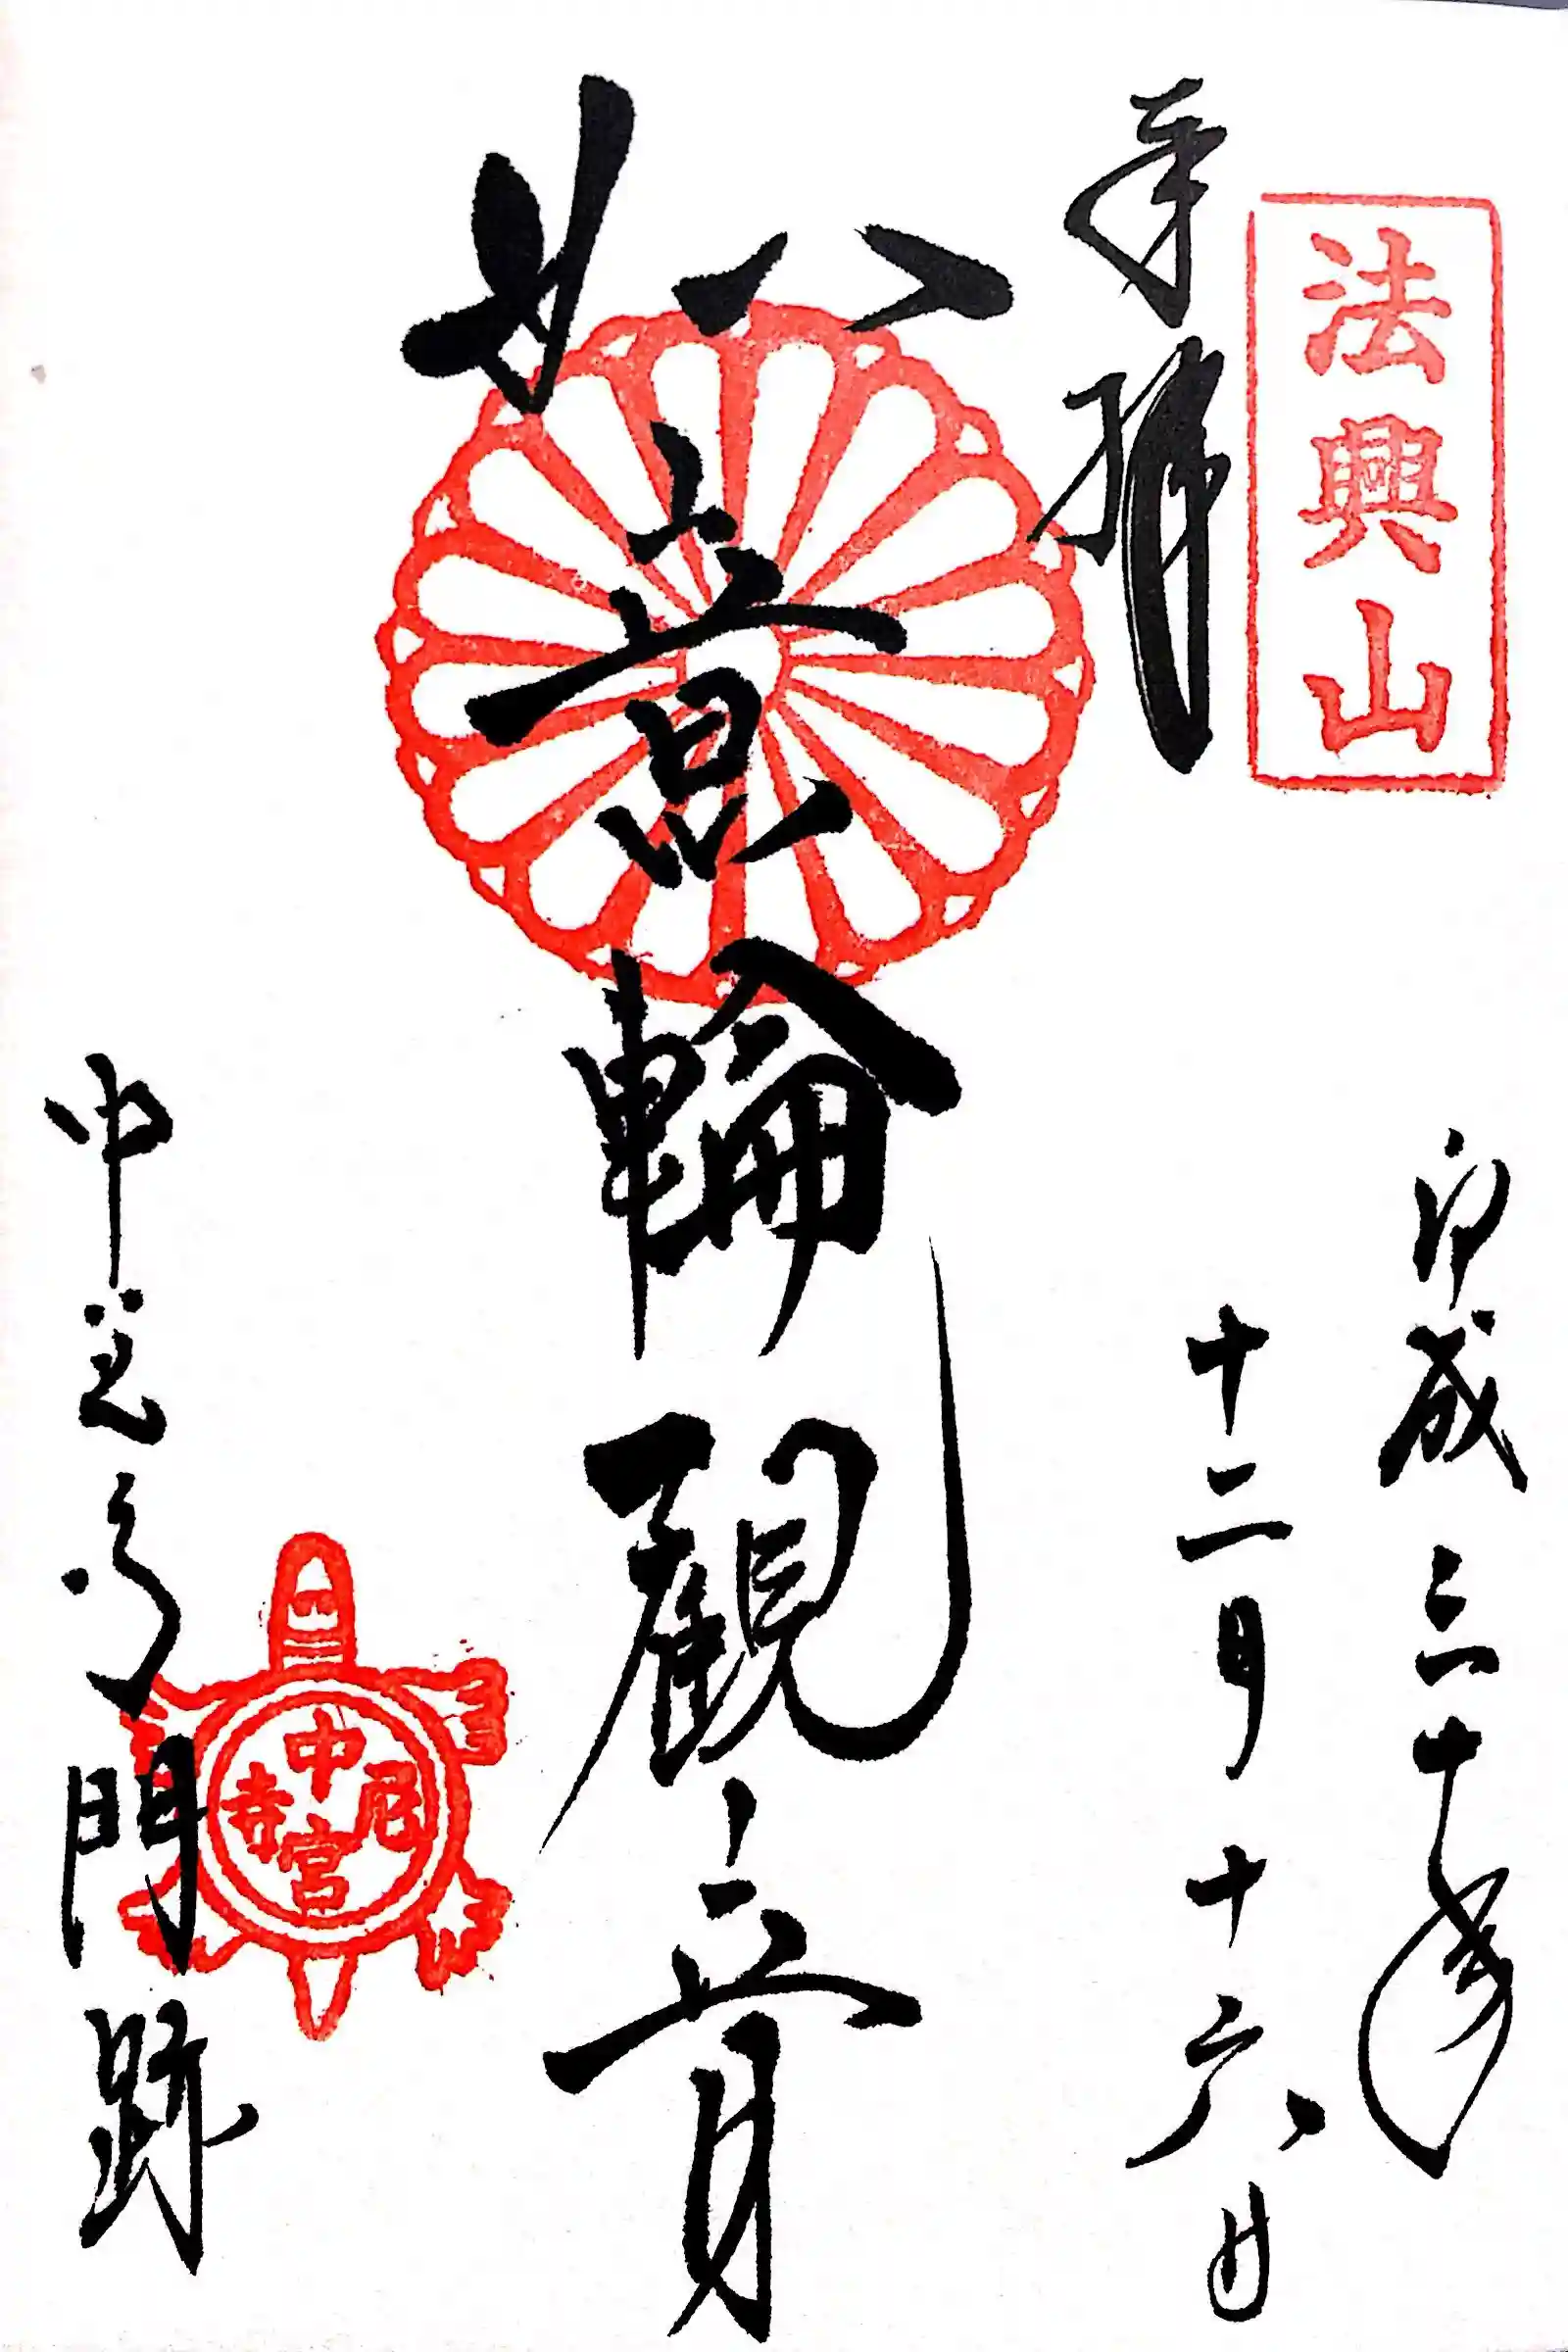 法興山
奉拝
平成三十年
十二月十六日
如意輪観音
中宮寺門跡
中宮尼寺